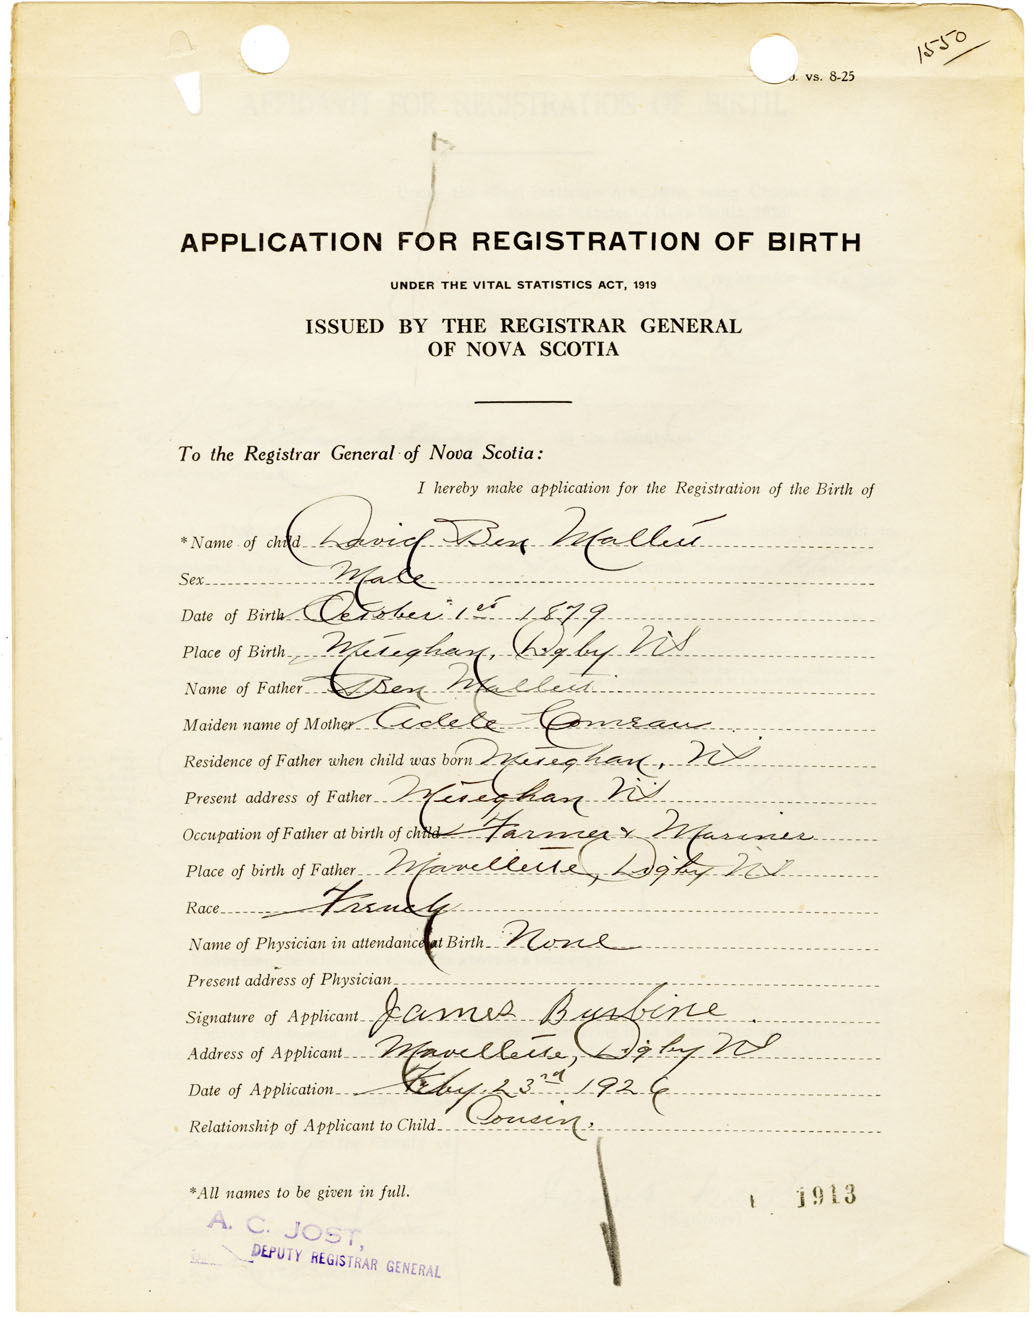 1550
. vs. 8-25
APPLICATION FOR REGISTRATION OF BIRTH
UNDER THE VITAL STATISTICS ACT, 1919
ISSUED BY THE REGISTRAR GENERAL
OF NOVA SCOTIA
To the Registrar General of Nova Scotia:
I hereby make application for the Registration of the Birth of
*Name of child David Ben Mallett
Sex Male
Date of Birth October 1st 1879
Place of Birth Meteghan, Digby NS
Name of Father Ben Mallett
Maiden name of Mother Adele Comeau
Residence of Father when child was born Meteghan, NS
Present address of Father Meteghan NS
Occupation of Father at birth of child Farmer & Mariner
Place of birth of Father Mavellette, Digby NS
Race French
Name of Physician in attendance at Birth None
Present address of Physician
Signature of Applicant James Burbine
Address of Applicant Mavellette, Digby NS
Date of Application Feby. 23rd 1926
Relationship of Applicant to Child Cousin.
*All names to be given in full.
1913
A. C. JOST,
DEPUTY REGISTRAR GENERAL